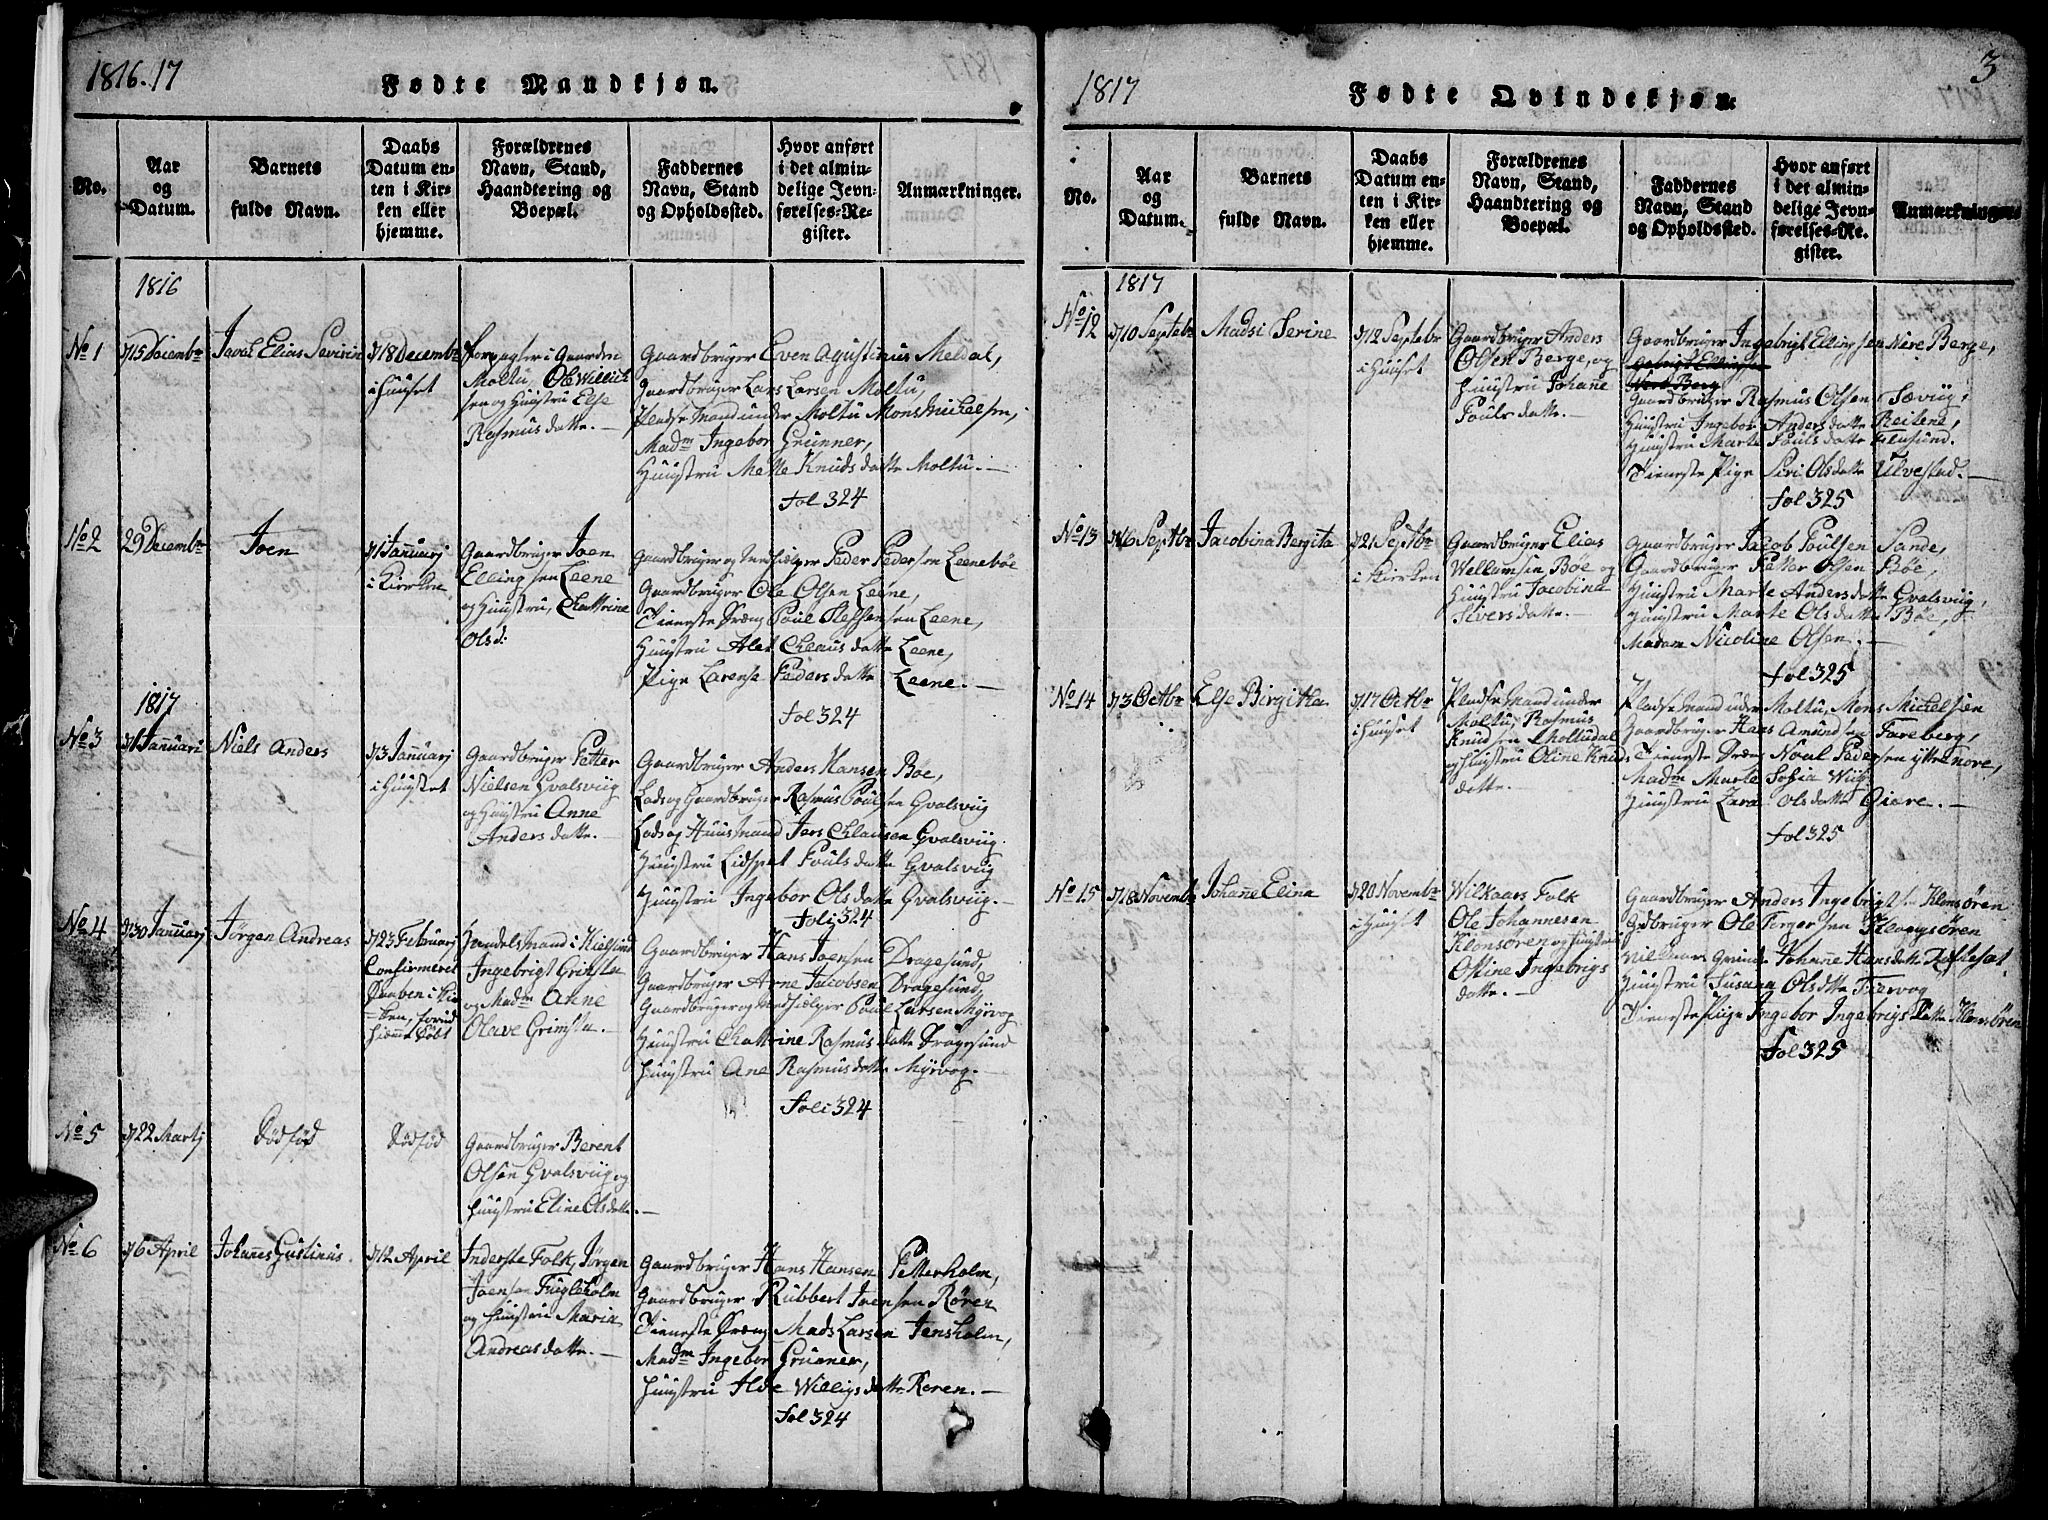 1816.17
Fødte Mandkjøn.
No.
Aar
og
Datum.
Barnets
fulde Navn.
Daabs
Datum en-
ten i Kir-
ken eller
hjemme.
Forældrenes
Navn, Stand,
Haandtering og
Boepæl.
Faddernes
Navn, Stand
og Opholdssted.
Hvor anført
i det almin-
delige Jevn-
førelses-Re-
gister.
Anmærkninger.
1816
No 1
15 Decembr
Elias Sevirin
18 Decembr
i Huuset
Forpagter i Gaarden
Moltu, Ole Willich
sen og Huustru Else
Rasmusdatte.
Gaardbruger Even Agustinus Meldal,
Gaardbruger Lars Larsen Moltu,
Pladse Mand under Moltu Mons Mickelsen,
Madm Ingebor Grunner,
Huustru Mette Knudsdatte Moltu.
Fol 324
No 2
29 Decembr
Joen
1 Januarj
i Kierken
Gaardbruger Joen
Ellingsen Leene
og Huustru, Chattrine
Olsd:
Gaardbruger og Medhielper Peder Pedersen Leenebøe
Gaardbruger Ole Olsen Leene,
Tieneste Dreng Poul Steffensen Leene,
Huustru Alet Clausdatte Leene,
Pige Larense Pedersdatte Leene.
Fol 324
1817
No 3
1 Januari
Niels Anders
3 Januarj
i Huuset
Gaardbruger Petter
Nielsen Gvalsviig
og Huustru Anne
Andersdatte.
Gaardbruger Anders Hansen Bøe,
Lods og Gaardbruger Rasmus Poulsen Gvalsviig
Lods og Huusmand Jars Clausen Gvalsviig.
Huustru Lidspet Poulsdatte Gvalsviig
Huustru Ingebor Olsdatte Gvalsviig.
Foli 324
No 4
30 Januarj
Jørgen Andreas
23 Februarj
Confirmeret
Daaben i Kir
-ken, forud
hiemme Døbt
Handelsmand i Kielsund
Ingebrigt Grimsta
og Madm Anne
Olave Grimsta.
Gaardbruger Hans Joensen Dragesund,
Gaardbruger Arne Jacobsen Dragesund,
Gaardbruger og Medhielper Poul Larsen Myrvog
Huustru Chattrine Rasmusdatte Dragesund
Huustru Ane Rasmusdatte Myrvog.
Foli 324
No 5
22 Martj
Dødfød
Dødfød
Gaardbruger Berent
Olsen Gvalsviig og
Huustru Eline Olsdatte.
No 6
6 April
Johannes Gustinus
12 April
Inderste Folk, Jørgen
Joensen Fugleholm
og Huustru Maria
Andreasdatte.
Gaardbruger Hans Hansen Petterholm,
Gaardbruger Rubbert Joensen Røren
Tieneste Dreng Mads Larsen Jensholm,
Madm Ingebor Grunner,
Huustru Alde Willigsdatte Roren.
Fol 324
1817
Fødte Qvindekjøn.
3
No.
Aar
og
Datum.
Barnets
fulde Navn.
Daabs
Datum en-
ten i Kir-
ken eller
hjemme.
Forældrenes
Navn, Stand,
Haandtering og
Boepæl.
Faddernes
Navn, Stand
og Opholdssted.
Hvor anført
i det almin-
delige Jevn-
førelses-Re-
gister.
Anmærkninger.
1817
No 12
10 Septebr
Madsi Serine
12 Septebr
i Huuset
Gaardbruger Anders
Olsen Berge, og
Huustru Johane
Poulsdatte.
Gaardbruger Ingebrigt Ellingsen Nere Berge,
Gaardbruger Rasmus Olsen Sæviig,
Huustru Ingebor Andersdatte Reitene,
Huustru Marte Poulsdatte
Tieneste Pige Siri Olsdatte Ulvestad.
Fol 325
No 13
16 Septbr
Jacobina Bergita
21 Septbr
i Kierken
Gaardbruger Elias
Wellamsen Bøe og
Huustru Jacobina
Siversdatte.
Gaardbruger Jacob Poulsen Sande,
Gaardbruger Petter Olsen Bøe,
Huustru Marte Andersdatte Gvalsviig,
Huustru Marte Olsdatte Bøe,
Madam Nicoline Olsen.
Fol 325
No 14
3 Octbr
Else Birgitha
17 Octbr
i Huuset
Pladse Mand under
Moltu, Rasmus
Knudsen Moltudal
og Huustru Oline Knuds
datte.
Pladse Mand under Moltu, Mons Mickelsen
Gaardbruger Hans Amundsen Fareberg,
Tieneste Dreng Noal Pedersen ytre nore,
Madm Marte Sofia Wiig
Huustru Zara Olsdatte Giære.
Fol 325
No 15
18 Novembr
Johane Elina
20 Novembr
i Huuset
Wilkaars Folk
Ole Johannesen
Klonsøren og Huustru
Ostine Ingebrigs
datte.
Gaardbruger Anders Ingebrigtsen Klonsøren
Gdbruger Ole Torgersen Kloegsøren
Vilkaars Qvinde Johane Hansdatte Røstesat
Huustru Susana Olsdtte Frøvog
Tieneste Piige Ingebor Ingebrigsdatte Klonsøren
Fol 325